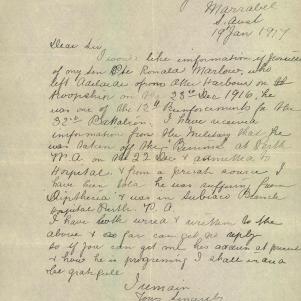 Marrabel
S. Aust
19 Jan 1917
Dear Sir
would like information if possible
of my son Pte Ronald Marlow, who
left Adelaide from Outer Harbour on the
Troopship on the 23rd Dec. 1916, he
was one of the 12th Reinforcements for the
32nd Battalion. I have received
information from the Military that he
was taken off the at Perth
W.A on the 22 Dec & admitted to
Hospital & from a private source I
have been told he was suffering from
Diptheria & was in Subiaco Branch
Hospital Perth. W.A.
I have both wired & written to the
above & so far can get no reply
so if you can get me his address at present
& how he is progressing I shall
be grateful
I remain
Yours Sincerely